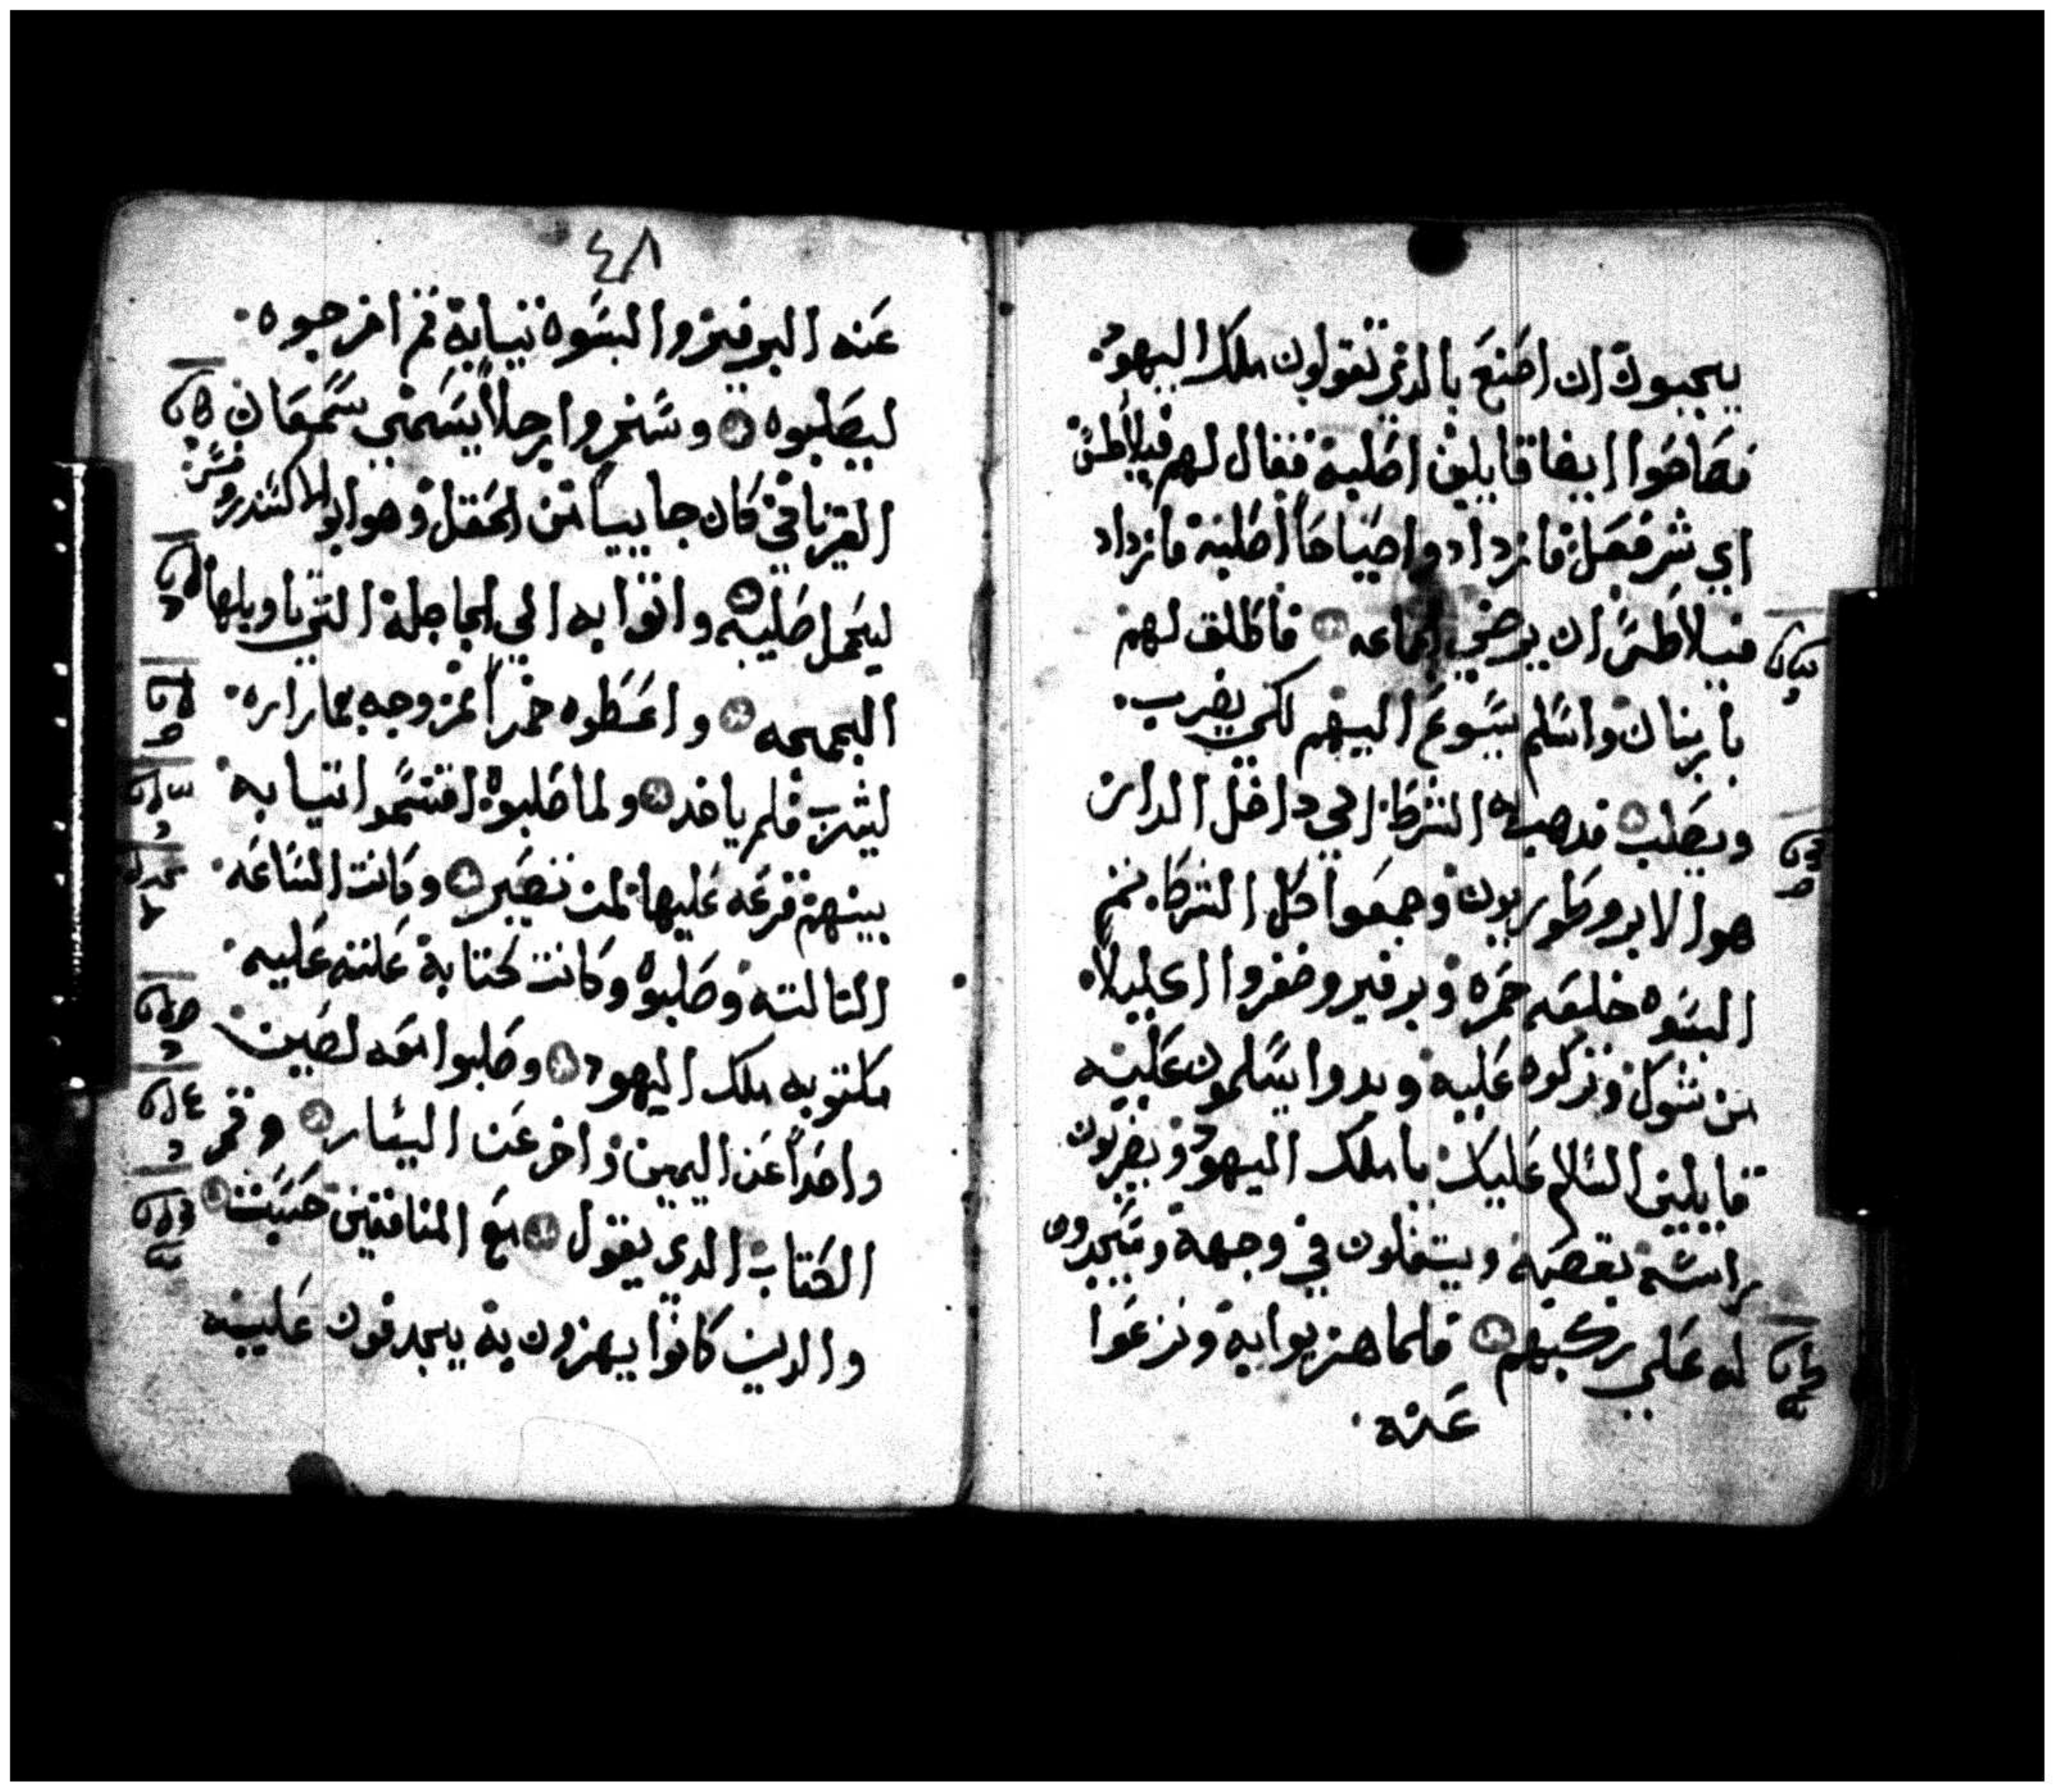 يحبون ان اصنع بالدي تقولون ملك اليهود
فصاحوا ايضا قايلين اصلبه فقال لهم فيلاطس
اي شر فعل فازدادوا صياحاً اصلبه فازداد
فيلاطس ان يرضي الجماعه فاطلق لهم
بارنبان واسلم يسوع اليهم لكي يضرب
ويصلب فدهب به الشرط الي داخل الدار
هوا الابروطوريون وجمعوا كل الشرط ثم
البسوه خليقه حمره وبرفير وضفروا اكليلاً
من شوك وتركوه عليه وبدوا يسلمون عليه
قايلين السلام عليك يا ملك اليهود ويضربون
راسه بقصبه ويتفلون في وجهه ويسجدون
له علي ركبهم فلما هزبوا به ونزعوا
عنه
٤٨
عنه البرفير والبسوه تيابه ثم اخرجوه
ليصلبوه وسخروا رجلاً يسمي سمعان
القرنافي كان جاييا من الحقل وهو ابو الاكسندروس
ليحمل صليبه واتوا به الي الجاجلة التي تاويلها
الجمجمه واعطوه خمراً ممزوجه بمراره
ليشرب فلم ياخد ولما صلبوه اقتسموا تيابه
بينهم قرعه عليها لمن تصير وكانت الساعه
التالته وصلبوه وكانت كتابة علته عليه
مكتوبه ملك اليهود وصلبوا معه لصين
واحداً عن اليمين واخر عن اليسار وتم
الكتاب الدي يقول مع المنافقين حسب
والدين كانوا يهزون به يجدفون عليه